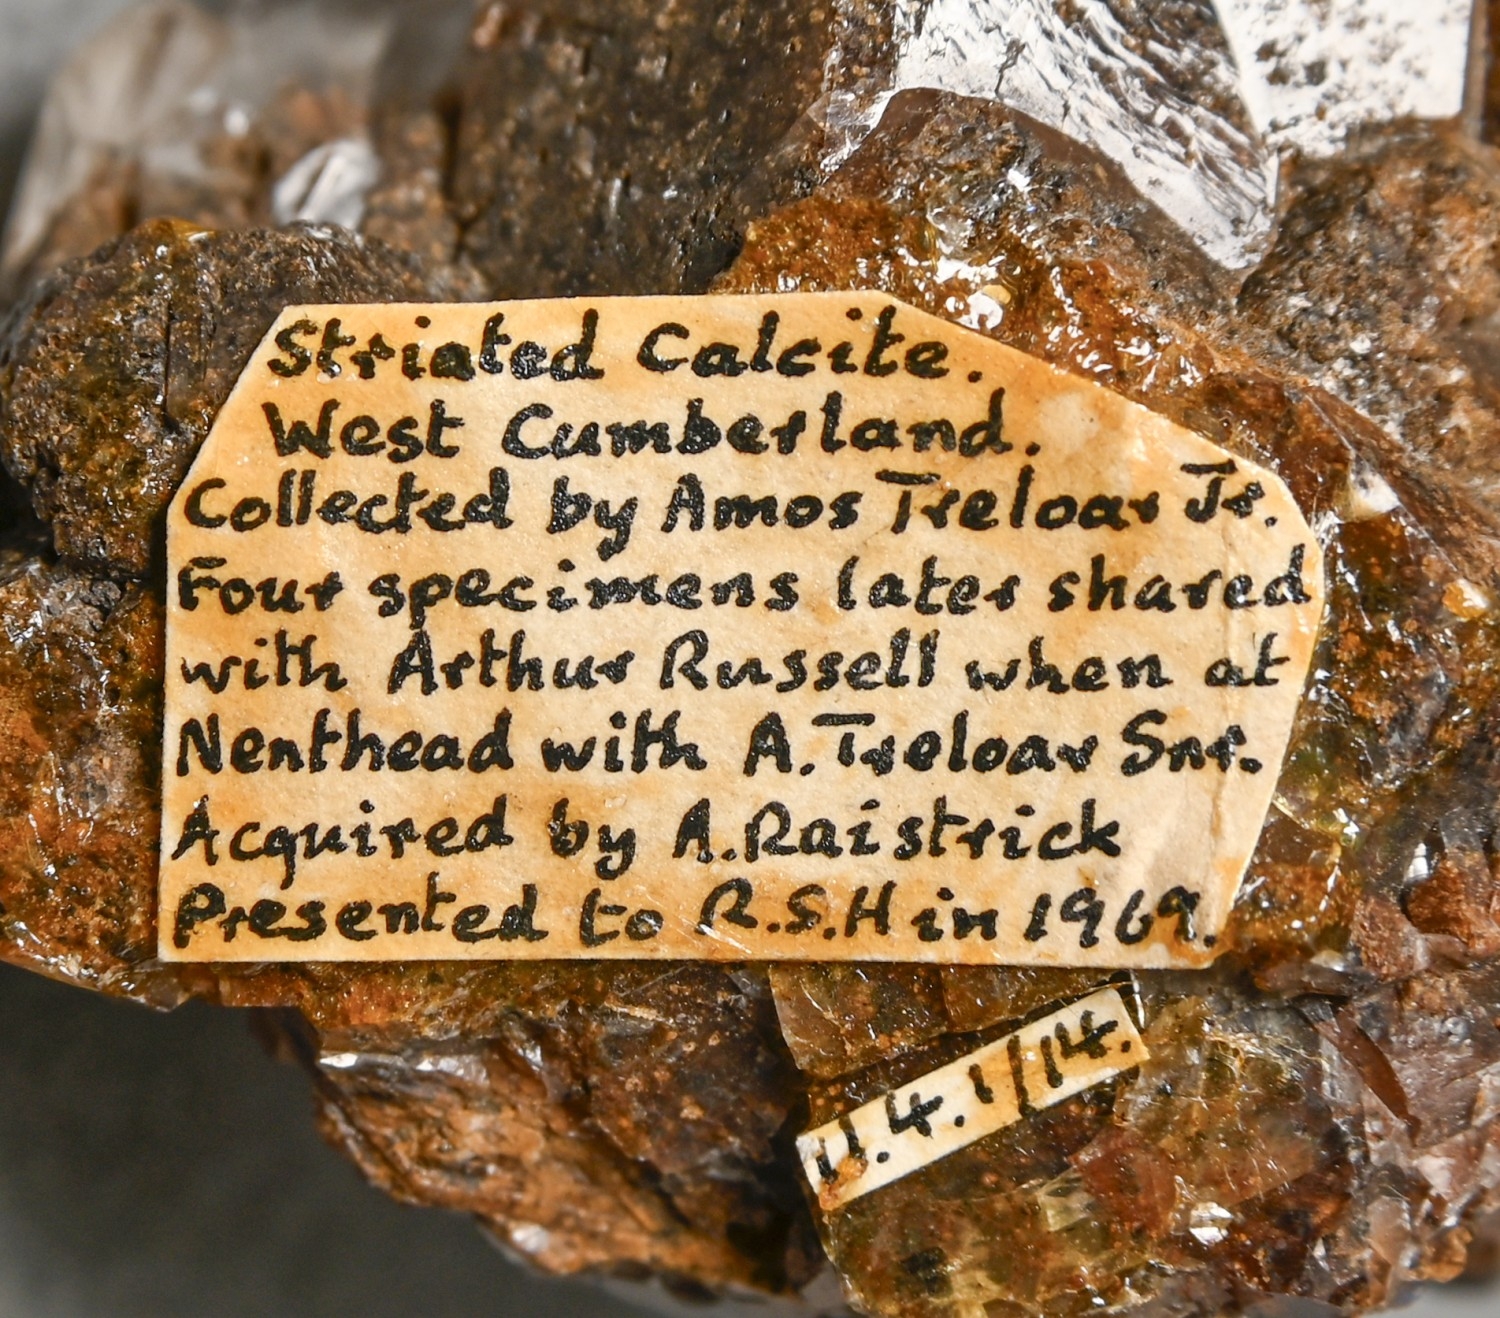 Striated Calcite.
West Cumberland.
Collected by Amos Treloar Jr.
Four specimens later shared
with Arthur Russell when at
Nenthead with A. Treloar Snr.
Acquired by A. Raistrick
Presented to R.S.H in 1969.
11.4.1/14.